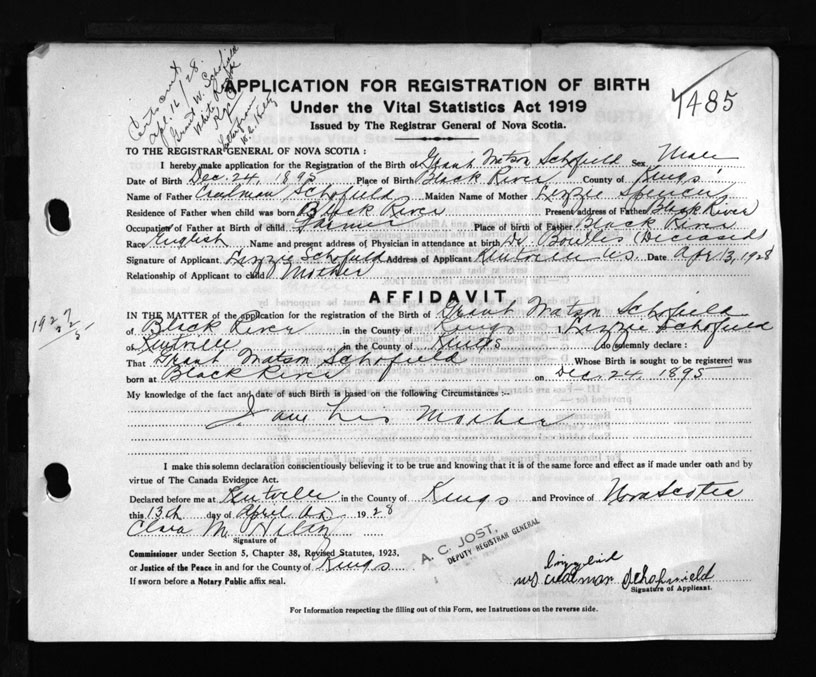 Apl. 16/28.
Grant W. Schofield
APPLICATION FOR REGISTRATION OF BIRTH
1485
Under the Vital Statistics Act 1919
Issued by The Registrar General of Nova Scotia.
TO THE REGISTRAR-GENERAL OF NOVA SCOTIA :
I hereby make application for the Registration of the Birth of Grant Watson Schofield Sex Male
Date of Birth Dec. 24, 1895 Place of Birth Black River County of Kings
Name of Father Schofield Maiden Name of Mother Lizzie Spencer
Residence of Father when child was born Black River Present address of Father Black River
Occupation of Father at Birth of child Farmer Place of birth of Father Black River
Race English Name and present address of Physician in attendance at birth Dr. Bowles (Deceased)
Signature of Applicant Lizzie Schofield Address of Applicant Kentville N.S. Date Apr 13, 1928
Relationship of Applicant to child Mother
AFFIDAVIT
IN THE MATTER of the application for the registration of the Birth of Grant Watson Schofield
of Black River in the County of Kings I Lizzie Schofield
of Kentville in the County of Kings do solemnly declare :
That Grant Watson Schofield Whose Birth is sought to be registered was
born at Black River on Dec. 24, 1895
My knowledge of the fact and date of such Birth is based on the following Circumstances :—
I am his Mother
I make this solemn declaration conscientiously believing it to be true and knowing that it is of the same force and effect as if made under oath and by
virtue of The Canada Evidence Act.
Declared before me at Kentville in the County of Kings and Province of Nova Scotia
this 13th day of April A.D. 1928
Clara M.
Signature of
Commissioner under Section 5, Chapter 38, Revised Statutes, 1923,
or Justice of the Peace in and for the County of Kings
If sworn before a Notary Public affix seal.
A. C. JOST,
DEPUTY REGISTRAR GENERAL
Schofield
Signature of Applicant.
For Information respecting the filling out of this Form, see Instructions on the reverse side.